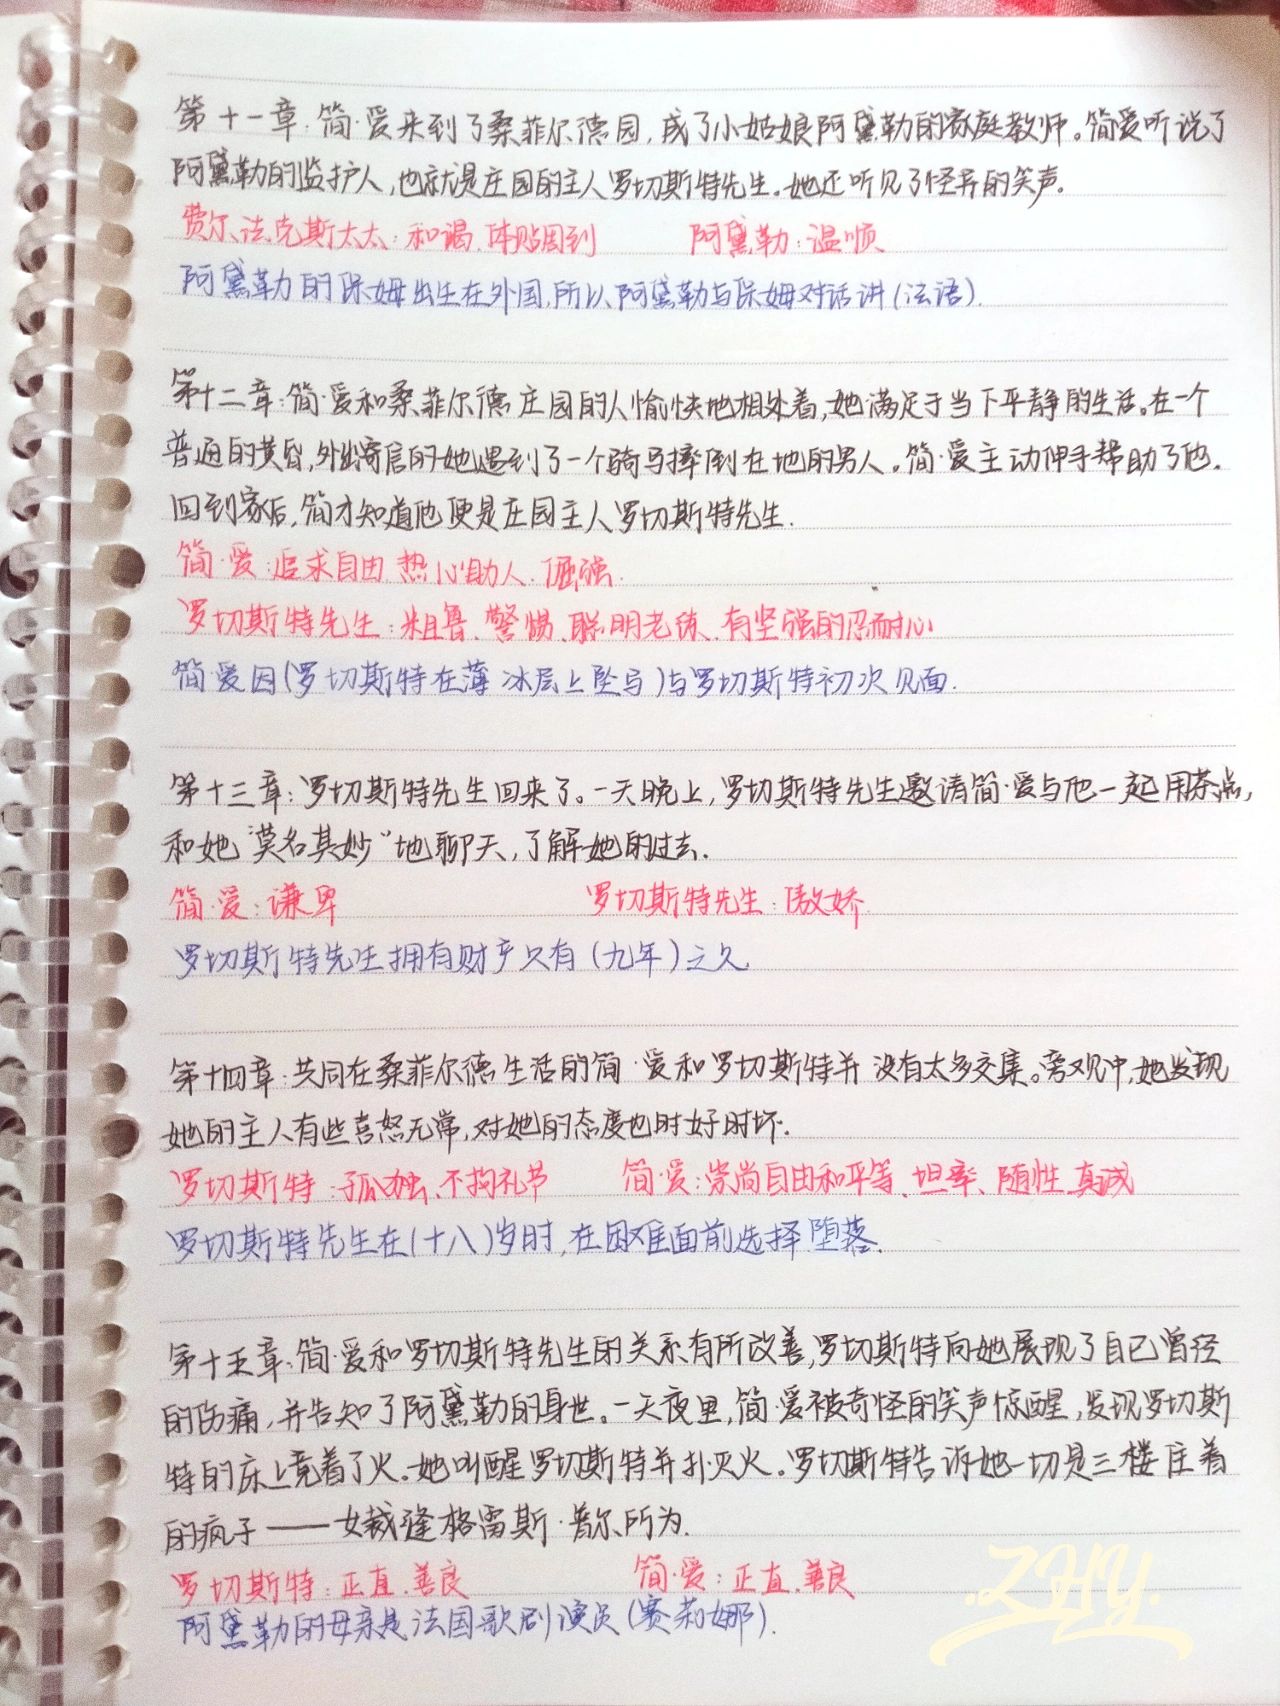 第十一章:简·爱来到了桑菲尔德园,成了小姑娘阿黛勒的家庭教师。简爱听说了
阿黛勒的监护人,也就是庄园的主人罗切斯特先生。她还听见了怪异的笑声。
费尔法克斯太太:和谒、体贴周到 阿黛勒:温顺
阿黛勒的保姆出生在外国,所以,阿黛勒与保姆对话讲(法语).
第十二章:简·爱和桑菲尔德庄园的人愉快地相处着,她满足于当下平静的生活。在一个
普通的黄昏,外出寄信的她遇到了一个骑马摔倒在地的男人。简·爱主动伸手帮助了他.
回到家后,简才知道他便是庄园主人罗切斯特先生.
简·爱:追求自由、热心助人、倔强.
罗切斯特先生:粗鲁、警惕、聪明老练、有坚强的忍耐心
简·爱因(罗切斯特在薄冰层上坠马)与罗切斯特初次见面.
第十三章:罗切斯特先生回来了。一天晚上,罗切斯特先生邀请简·爱与他一起用茶点,
和她“莫名其妙”地聊天,了解她的过去.
简·爱:谦卑 罗切斯特先生:傲娇.
罗切斯特先生拥有财产只有(九年)之久
第十四章:共同在桑菲尔德生活的简·爱和罗切斯特并没有太多交集。旁观中,她发现
她的主人有些喜怒无常,对她的态度也时好时坏.
罗切斯特:孤独、不拘礼节 简·爱:崇尚自由和平等、坦率、随性、真诚
罗切斯特先生在(十八)岁时,在困难面前选择堕落.
第十五章:简·爱和罗切斯特先生的关系有所改善,罗切斯特向她展现了自己曾经
的伤痛,并告知了阿黛勒的身世。一天夜里,简·爱被奇怪的笑声惊醒,发现罗切斯
特的床上竟着了火。她叫醒罗切斯特并扑灭火。罗切斯特告诉她一切是三楼住着
的疯子——女裁缝格雷斯·普尔所为.
罗切斯特:正直、善良 简·爱:正直、善良
阿黛勒的母亲是法国歌剧演员(赛莉娜).
ZHY